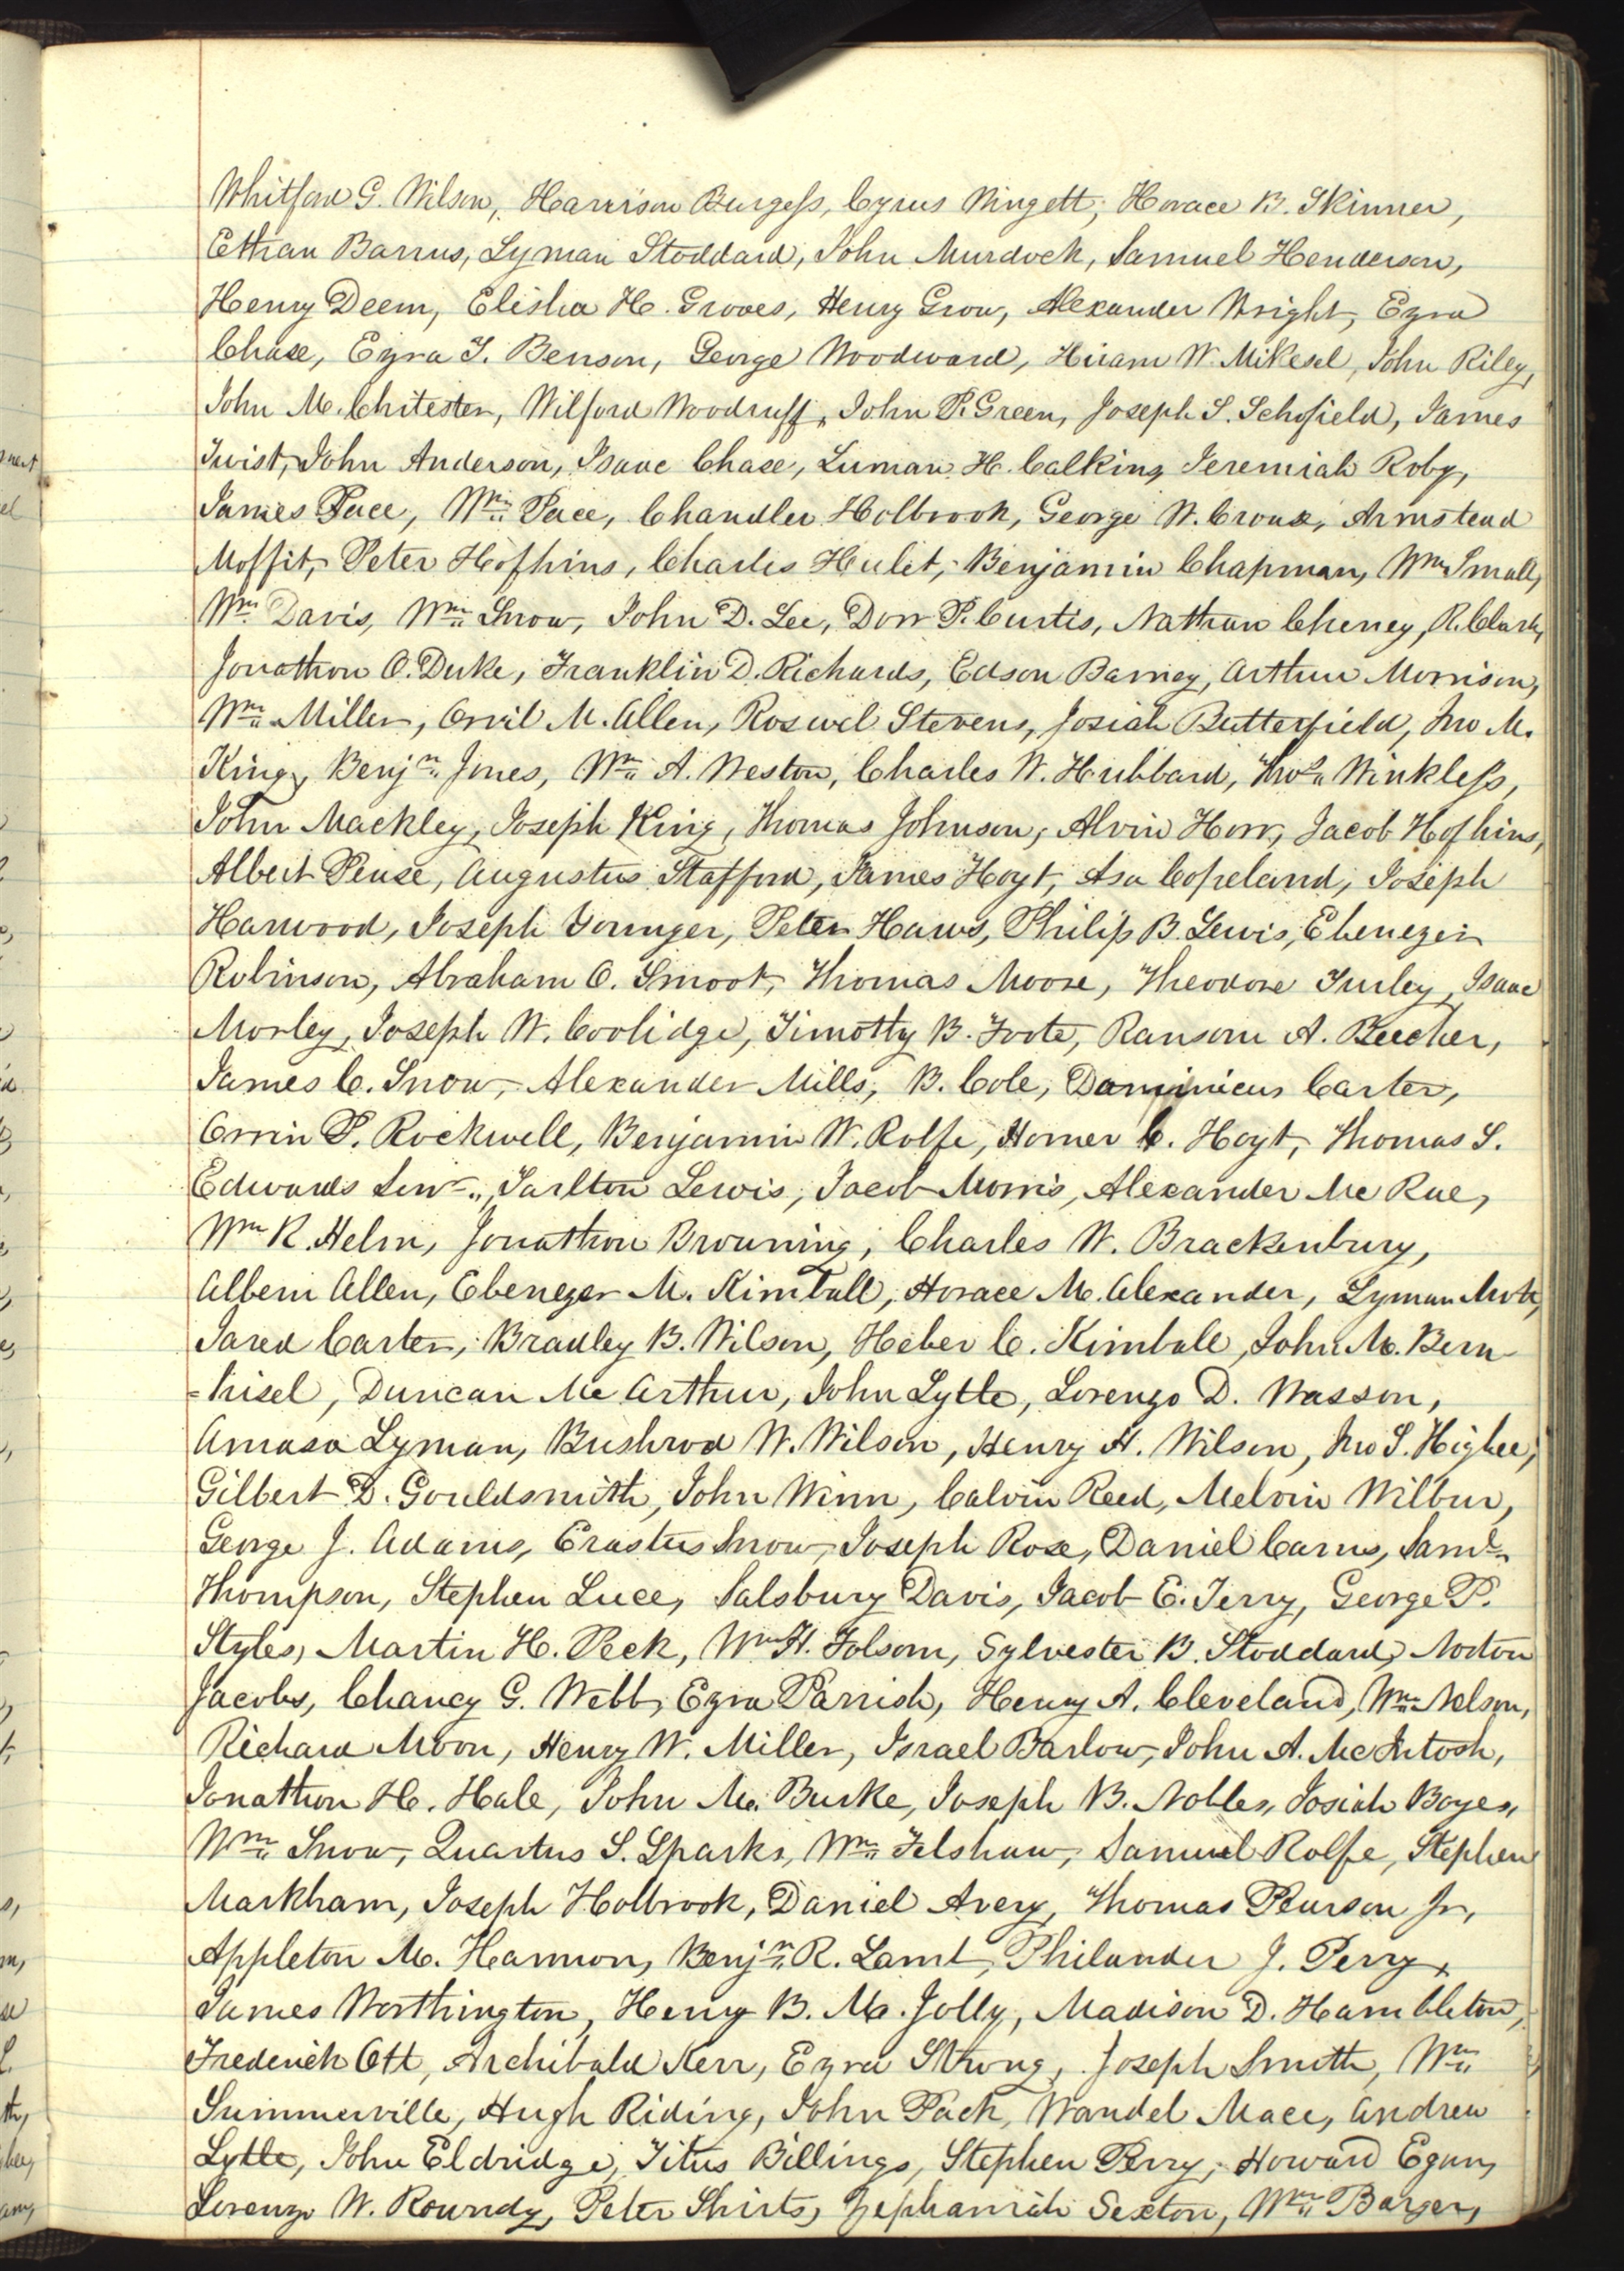 Whitford G. Wilson, Harrison Burgess, Cyrus Wingett, Horace B. Skinner,
Ethan Barrus, Lyman Stoddard, John Murdock, Samuel Henderson,
Henry Deem, Elisha H. Groves, Henry Grow, Alexander Wright, Ezra
Chase, Ezra T. Benson, George Woodward, Hiram W. Mikesel, John Riley,
John M. Chitester, Wilford Woodruff, John P. Green, Joseph S. Schofield, James
Twist, John Anderson, Isaac Chase, Luman H. Calkins, Jeremiah Roby,
James Pace, Wm. Pace, Chandler Holbrook, George W. Crouse, Armstead
Moffit, Peter Hofhins, Charles Hulet, Benjamin Chapman, Wm Small,
Wm. Davis, Wm. Snow, John D. Lee, Dorr P. Curtis, Nathan Cheney, R. Clark,
Jonathon O. Duke, Franklin D. Richards, Edson Barney, Arthur Morrison,
Wm. Miller, Orvil M. Allen, Roswel Stevens, Josiah Butterfield, Jno M.
King, Benjn. Jones, Wm. A. Weston, Charles W. Hubbard, Thos. Winkless,
John Mackley, Joseph King, Thomas Johnson, Alvin Horr, Jacob Hofhins,
Albert Pease, Augustus Stafford, James Hoyt, Asa Copeland, Joseph
Harwood, Joseph Younger, Peter Haws, Philip B. Lewis, Ebenezer
Robinson, Abraham O. Smoot, Thomas Moore, Theodore Turley, Isaac
Morley, Joseph W. Coolidge, Timothy B. Foote, Ransom A. Beecher,
James C. Snow, Alexander Mills, B. Cole, Daminicus Carter,
Orrin P. Rockwell, Benjamin W. Rolfe, Homer C. Hoyt, Thomas S.
Edwards Senr., Tarlton Lewis, Jacob Morris, Alexander Mc Rae,
Wm R. Helm, Jonathon Browning, Charles W. Brackenbury,
Albern Allen, Ebenezer M. Kimball, Horace M. Alexander, Lyman
Jared Carter, Bradley B. Wilson, Heber C. Kimball, John M. Bern
=hisel, Duncan Mc Arthur, John Lytle, Lorenzo D. Wasson,
Amasa Lyman, Bushrod W. Wilson, Henry H. Wilson, Jno S. Higbee,
Gilbert D. Gouldsmith, John Winn, Calvin Reed, Melvin Wilbur,
George J. Adams, Erastus Snow, Joseph Rose, Daniel Carns, Saml.
Thompson, Stephen Luce, Salsbury Davis, Jacob E. Terry, George P.
Styles, Martin H. Peck, Wm H. Folsom, Sylvester B. Stoddard, Norton
Jacobs, Chancy G. Webb, Ezra Parrish, Henry A. Cleveland, Wm. Nelson,
Richard Moon, Henry W. Miller, Israel Barlow, John A. McIntosh,
Jonathon H. Hale, John M. Burke, Joseph B. Nobles, Josiah Boyes,
Wm. Snow, Quartus S. Sparks, Wm. Felshaw, Samuel Rolfe, Stephen
Markham, Joseph Holbrook, Daniel Avery, Thomas Pearson Jr,
Appleton M. Harmon, Benjn. R. Lamb, Philander J. Perry,
James Worthington, Henry B. M. Jolly, Madison D. Hambleton,
Frederich Ott, Archibald Kerr, Ezra Strong, Joseph Smith, Wm.
Summerville, Hugh Riding, John Pack, Wandel Mace, Andrew
Lytle, John Eldridge, Titus Billings, Stephen Perry, Howard Egan,
Lorenzo W. Roundy, Peter Shirts, Zephaniah Sexton, Wm. Barger,